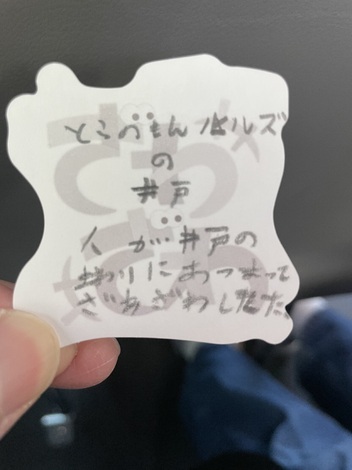 とこのもんヒルズ
の
井戸
人が井戸の
まわりにあつまって
ざわざわしだた